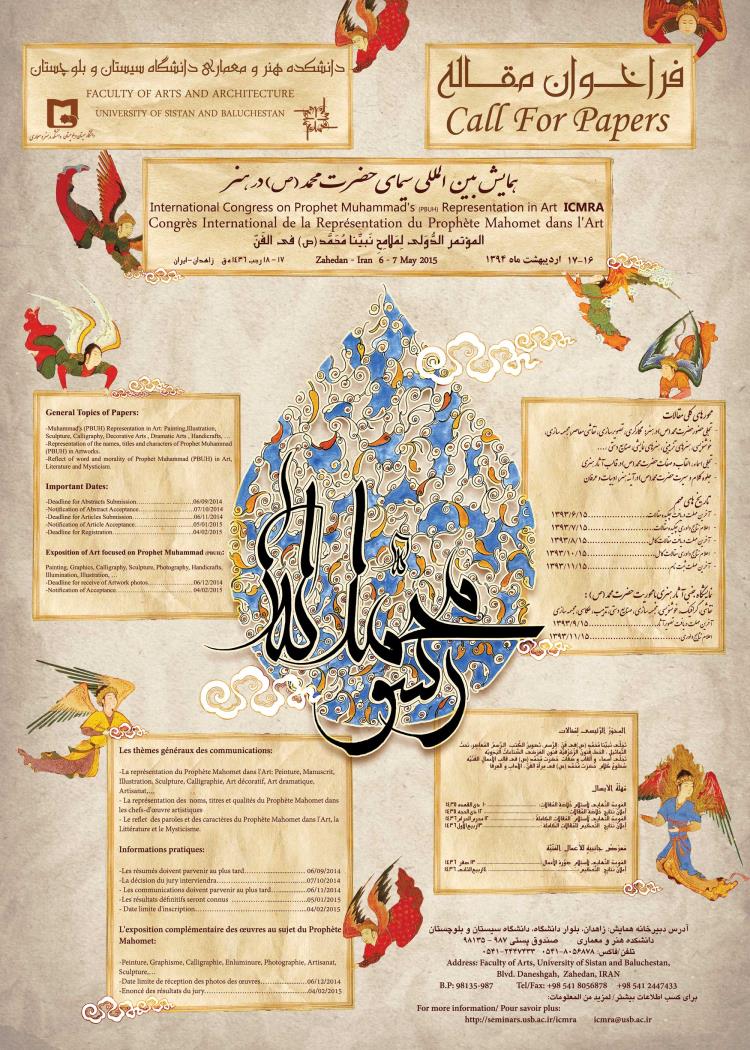 دانشکده هنر و معماری دانشگاه سیستان و بلوچستان
FACULTY OF ARTS AND ARCHITECTURE
UNIVERSITY OF SISTAN AND BALUCHESTAN
فراخوان مقاله
Call For Papers
همایش بین المللی سیمای حضرت محمد (ص) در هنر
International Congress on Prophet Muhammad's (PBUH) Representation in Art ICMRA
Congrès International de la Représentation du Prophète Mahomet dans l'Art
المؤتمر الدُّوَلی لِمَلامِح نَبیِّنا مُحَمَّد (ص) فی الفَنّ
۱۶-۱۷ اردیبهشت ماه ۱۳۹۴ Zahedan - Iran 6 - 7 May 2015 ۱۷-۱۸ رجب ۱۴۳۶ ه‍ ق زاهدان-ایران
General Topics of Papers:
-Muhammad's (PBUH) Representation in Art: Painting,Illustration,
Sculpture, Calligraphy, Decorative Arts , Dramatic Arts , Handicrafts,
-Representation of the names, titles and characters of Prophet Muhammad
(PBUH) in Artworks.
-Reflect of word and morality of Prophet Muhammad (PBUH) in Art,
Literature and Mysticism.
Important Dates:
-Deadline for Abstracts Submission.......................06/09/2014
-Notification of Abstract Acceptance.....................07/10/2014
-Deadline for Articles Submission........................06/11/2014
-Notification of Article Acceptance......................05/01/2015
-Deadline for Registration...............................04/02/2015
Exposition of Art focused on Prophet Muhammad (PBUH):
Painting, Graphics, Calligraphy, Sculpture, Photography, Handicrafts,
Illumination, Illustration, ...
-Deadline for receive of Artwork photos..................06/12/2014
-Notification of Acceptance..............................04/02/2015
محورهای کلی مقالات
- تجلی حضور حضرت محمد (ص) در هنر: نگارگری، تصویرسازی، نقاشی معاصر، مجسمه سازی،
خوشنویسی، هنرهای تزیینی، هنرهای نمایشی، صنایع دستی ،...
- تجلی اسماء، القاب و صفات حضرت محمد (ص) در قالب آثار هنری
- جلوه کلام و سیرت حضرت محمد (ص) در آینه هنر، ادبیات و عرفان
تاریخ های مهم
- آخرین مهلت دریافت چکیده مقالات......................۱۳۹۳/۶/۱۵
- اعلام نتایج داوری چکیده مقالات......................۱۳۹۳/۷/۱۵
- آخرین مهلت دریافت مقالات کامل......................۱۳۹۳/۸/۱۵
- اعلام نتایج داوری مقالات کامل......................۱۳۹۳/۱۰/۱۵
- آخرین مهلت ثبت نام......................۱۳۹۳/۱۱/۱۵
نمایشگاه جنبی آثار هنری با محوریت حضرت محمد (ص) :
نقاشی، گرافیک، خوشنویسی، مجسمه سازی، صنایع دستی، تذهیب، عکاسی، مجسمه سازی
آخرین مهلت دریافت تصویر آثار......................۱۳۹۳/۹/۱۵
اعلام نتایج داوری......................۱۳۹۳/۱۱/۱۵
محمد رسول الله
Les thèmes généraux des communications:
-La représentation du Prophète Mahomet dans l'Art: Peinture, Manuscrit,
Illustration, Sculpture, Calligraphie, Art décoratif, Art dramatique,
Artisanat,...
- La représentation des noms, titres et qualités du Prophète Mahomet dans
les chefs-d'œuvre artistiques
- Le reflet des paroles et des caractères du Prophète Mahomet dans l'Art, la
Littérature et le Mysticisme.
Informations pratiques:
-Les résumés doivent parvenir au plus tard......................06/09/2014
-La décision du jury interviendra......................07/10/2014
- Les communications doivent parvenir au plus tard......................06/11/2014
-Les résultats définitifs seront connus ......................05/01/2015
- Date limite d'inscription......................04/02/2015
L'exposition complémentaire des œuvres au sujet du Prophète
Mahomet:
-Peinture, Graphisme, Calligraphie, Enluminure, Photographie, Artisanat,
Sculpture,...
-Date limite de réception des photos des œuvres......................06/12/2014
-Enoncé des résultats du jury......................04/02/2015
المحوَر الرَّئیسی لِلمَقالات
مُهلَة الأعمال
مَعرَض جانبیة للأعمال الفَنِّیَّة
آدرس دبیرخانه همایش: زاهدان، بلوار دانشگاه، دانشگاه سیستان و بلوچستان
دانشکده هنر و معماری صندوق پستی ۹۸۷ - ۹۸۱۳۵
تلفن/فاکس: ۸۰۵۶۸۷۸-۰۵۴۱ ۲۴۴۷۴۳۳-۰۵۴۱
Address: Faculty of Arts, University of Sistan and Baluchestan,
Blvd. Daneshgah, Zahedan, IRAN
B.P: 98135-987 Tel/Fax: +98 541 8056878 +98 541 2447433
برای کسب اطلاعات بیشتر/ لمزید من المعلومات:
For more information/ Pour savoir plus:
http://seminars.usb.ac.ir/icmra icmra@usb.ac.ir